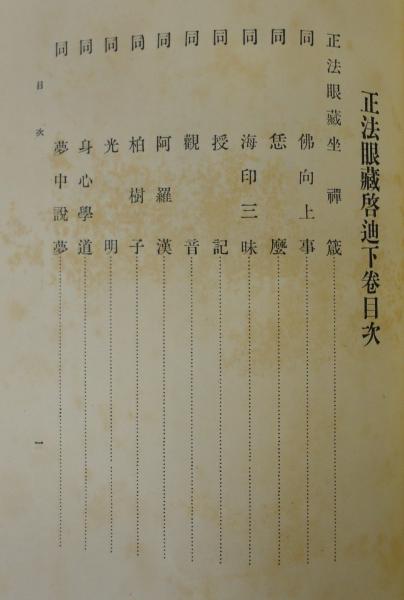 正法眼藏啓迪下卷目次
正法眼藏坐禪箴
同 佛向上事
同 恁麼
同 海印三昧
同 授記
同 觀音
同 阿羅漢
同 柏樹子
同 光明
同 身心學道
同 夢中說夢
目次 一